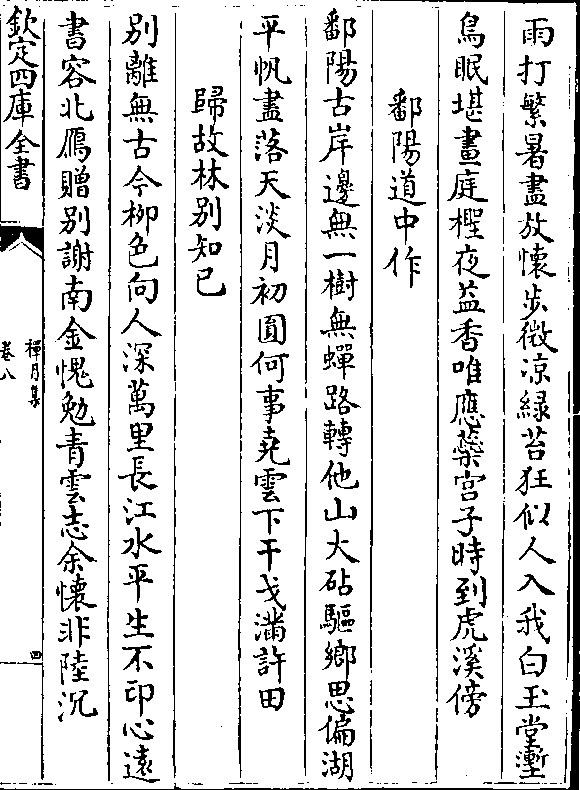 雨打繁暑盡放懷步微凉綠苔狂似人入我白玉堂塹
鳥眠堪畫庭檉夜益香唯應蘂宫子時到虎溪傍
鄱陽道中作
鄱陽古岸邊無一樹無蟬路轉他山大砧驅鄉思偏湖
平帆盡落天淡月初圓何事堯雲下干戈滿許田
歸故林别知已
别離無古今柳色向人深萬里長江水平生不印心遠
書容北鴈贈别謝南金愧勉青雲志余懷非陸沉
欽定四庫全書
禪月集
卷八
四